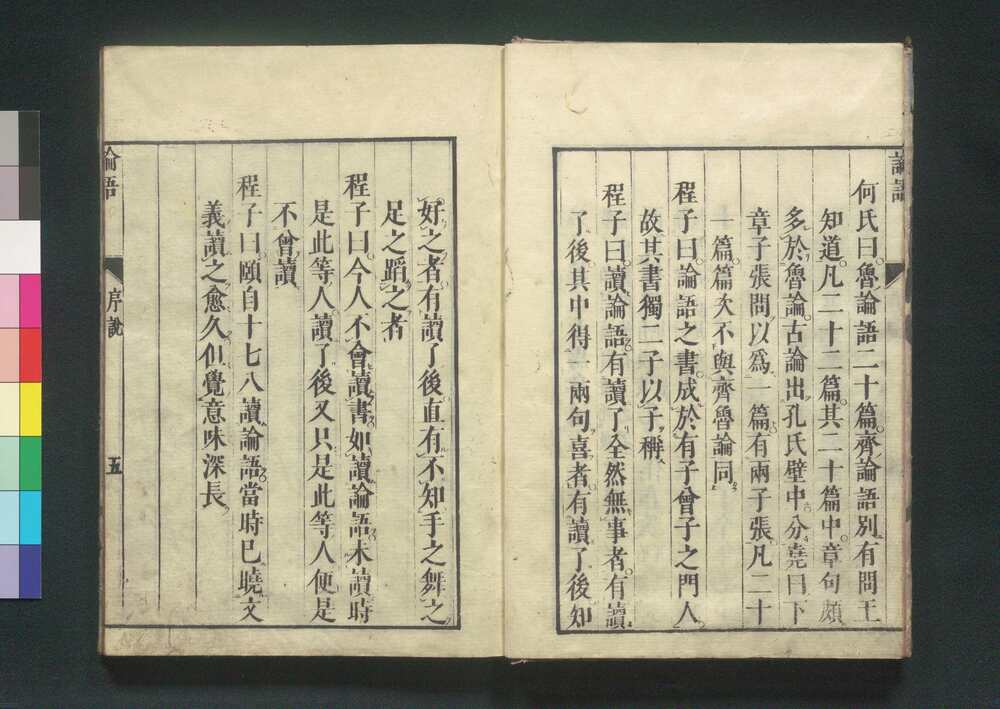 論語
何氏曰魯論語二十篇。齊論語別有問王
知道。凡二十二篇。其二十篇中。章句頗
多於魯論。古論出孔氏壁中。分堯曰下
章子張問以爲一篇。有兩子張。凡二十
一篇。篇次不與齊魯論同。
程子曰。論語之書。成於有子曾子之門人。
故其書獨二子以子稱
程子曰。讀論語。有讀了全然無事者。有讀
了後。其中得一兩句喜者。有讀了後知
好之者。有讀了後直有不知手之舞之
足之蹈之者
程子曰。今人不會讀書。如讀論語。未讀時
是此等人。讀了後又只是此等人。便是
不曾讀
程子曰。頤自十七八讀論語。當時已曉文
義。讀之愈久。但覺意味深長
論語
序說
五